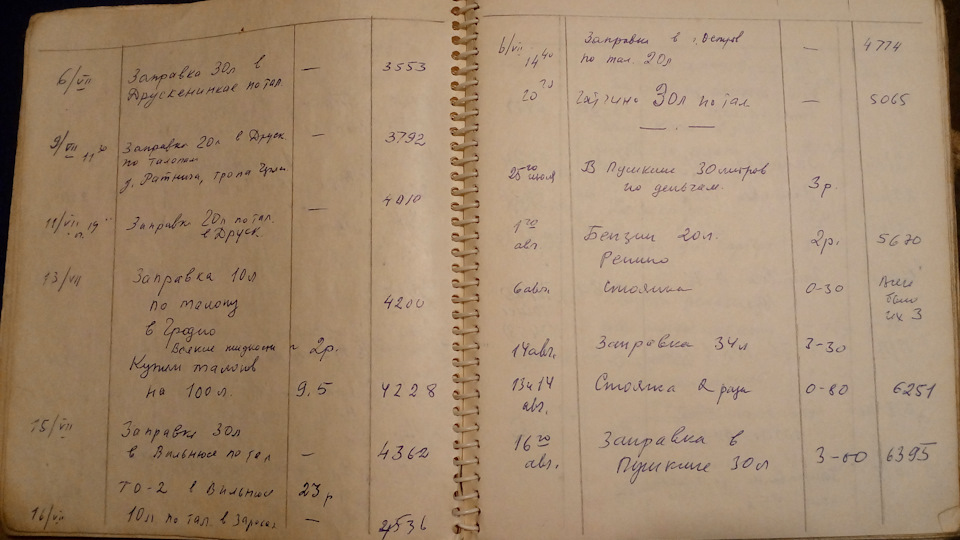 6/VII Заправка 30л в — 3553
Друскенинкае по тал.
9/VII 11 30 Заправка 20л в Друск. — 3792
по талонам
у. Ратнича, тропа
4010
11/VII Заправка 20л по тал. —
в Друск.
13/VII Заправка 10л
по талону 4200
в Гродно
Всякие жидкости 2р.
Купили талонов
на 100л. 9,5 4228
15/VII Заправка 30л
в Вильнюсе по тал — 4362
ТО-2 в Вильнюсе 23р
16/VII 10л по тал. в Зарасае — 4536
6/VII 14 40 Заправка в г. Остров — 4774
по тал. 20л
20 Гатчина 30л по тал — 5065
— . —
25го июля В Пушкине 30 литров
по деньгам. 3р.
1го авг. Бензин 20л. 2р. 5670
Репино
6 авг. Стоянка 0-30
было
их 3
14 авг. Заправка 34л 3-30
13 и 14 Стоянка 2 раза 0-80 6251
авг.
16го Заправка в
авг. Пушкине 30л 3-00 6395